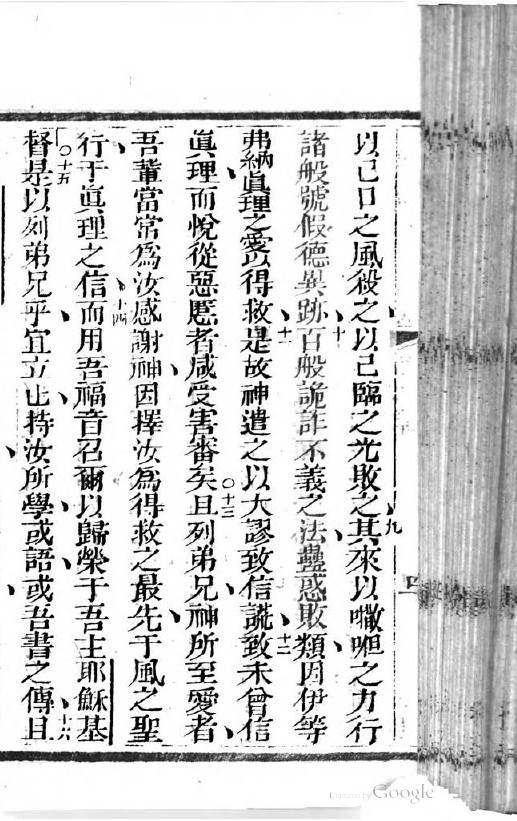 以己口之風殺之以己臨之光敗之其來以㘔呾之力行
諸般號假德異跡百般詭詐不義之法蠱惑敗類因伊等
弗納眞理之愛以得救是故神遣之以大謬致信謊致未曾信
眞理而悅從惡慝者咸受害審矣且列弟兄神所至愛者
吾輩當常爲汝感謝神因擇汝爲得救之最先于風之聖
行于眞理之信而用吾福音召爾以歸榮于吾主耶穌基
督是以列弟兄乎宜立也持汝所學或語或吾書之傳且
九
十
十一
十二
十三
十四
十五
十六
四
Digitized by Google